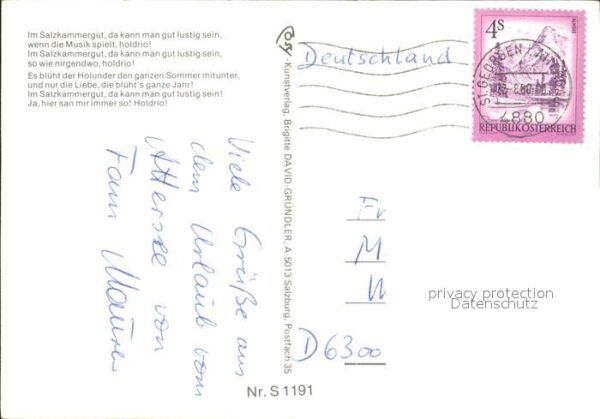 Im Salzkammergut, da kann man gut lustig sein,
wenn die Musik spielt, holdrio!
Im Salzkammergut, da kann man gut lustig sein,
so wie nirgendwo, holdrio!
Es blüht der Holunder den ganzen Sommer mitunter,
und nur die Liebe, die blüht's ganze Jahr!
Im Salzkammergut, da kann man gut lustig sein!
Ja, hier san mir immer so! Holdrio!
Viele Grüße aus
dem Urlaub vom
Attersee von
Fam
-Kunstverlag, Brigitte DAVID-GRÜNDLER, A-5013 Salzburg, Postfach 35
Nr. S 1191
Deutschland
4S
ST. GEORGEN
4880
REPUBLIK ÖSTERREICH
Fr
M
W
D 6300
privacy protection
Datenschutz